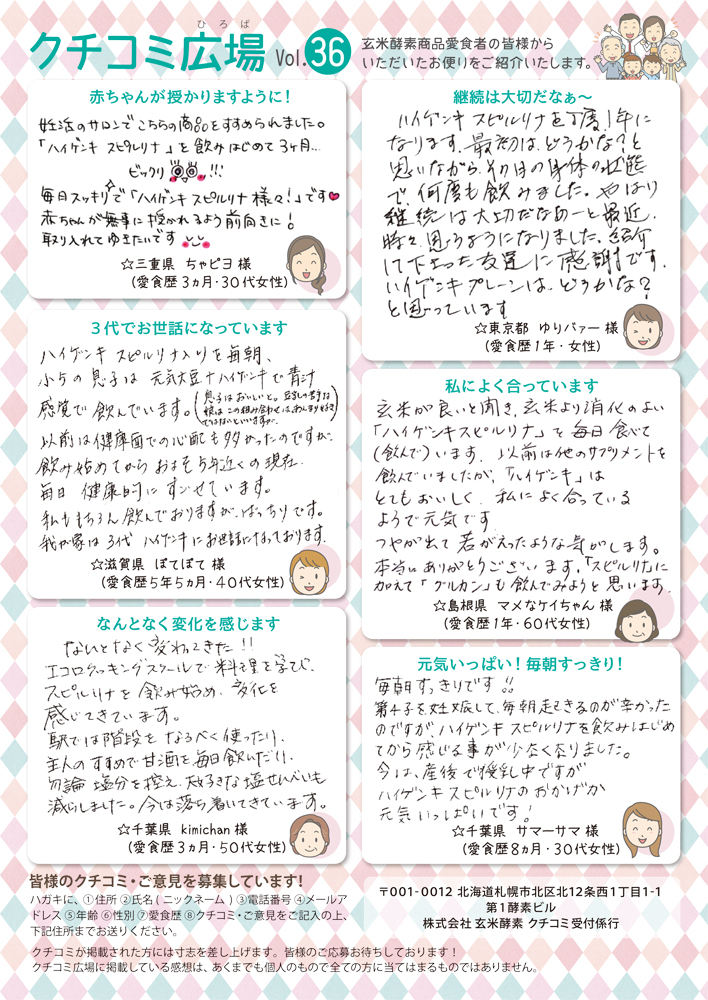 ひろば
クチコミ広場 Vol.36
玄米酵素商品愛食者の皆様から
いただいたお便りをご紹介いたします。
赤ちゃんが授かりますように！
妊活のサロンでこちらの商品をすすめられました。
「ハイゲンキ スピルリナ」を飲みはじめて3ヶ月…
ビックリ!!!
毎日スッキリで「ハイゲンキ スピルリナ様々！」です
赤ちゃんが無事に授かれるよう前向きに！
取り入れてゆきたいです
☆三重県 ちゃピヨ 様
（愛食歴３ヵ月・30代女性）
３代でお世話になっています
ハイゲンキ スピルリナ入りを毎朝、
小5の息子は 元気大豆＋ハイゲンキで青汁
感覚で飲んでいます。
（息子はおいしいと。豆乳の苦手な
娘はこの組み合わせはあんまり好き
ではないといいますが。）
以前は健康面での心配も多かったのですが、
飲み始めてから およそ5年近くの現在
毎日 健康的にすごせています。
私ももちろん飲んでおりますが、ばっちりです。
我が家は3代 ハイゲンキにお世話になっております。
☆滋賀県 ぽてぽて 様
（愛食歴５年５ヵ月・40代女性）
なんとなく変化を感じます
なんとなく変わってきた!!
エコロクッキングスクールで料理を学び、
スピルリナを飲み始め、変化を
感じてきています。
駅では階段をなるべく使ったり、
主人のすすめで甘酒を毎日飲んだり、
勿論 塩分を控え、大好きな塩せんべいも
減らしました。今は落ち着いてきています。
☆千葉県 kimichan 様
（愛食歴３ヵ月・50代女性）
継続は大切だなぁ〜
ハイゲンキ スピルリナを丁度1年に
なります。最初は、どうかな？と
思いながら、その日の身体の状態
で、何度も飲みました。やはり
継続は大切だなあーと最近、
時々、思うようになりました。紹介
して下さった友達に感謝です。
ハイゲンキプレーンは、どうかな？
と思っています
☆東京都 ゆりバァー 様
（愛食歴１年・女性）
私によく合っています
玄米が良いと聞き、玄米より消化のよい
「ハイゲンキスピルリナ」を毎日食べて
（飲んで）います。以前は他のサプリメントを
飲んでいましたが、「ハイゲンキ」は
とてもおいしく、私によく合っている
ようで元気です
つやが出て若がえったような気がします。
本当にありがとうございます。「スピルリナ」に
加えて「グルカン」も飲んでみようと思います。
☆島根県 マメなケイちゃん 様
（愛食歴１年・60代女性）
元気いっぱい！毎朝すっきり！
毎朝すっきりです!!
第4子を妊娠して、毎朝起きるのが辛かった
のですが、ハイゲンキ スピルリナを飲みはじめ
てから感じる事が少なくなりました。
今は、産後で授乳中ですが
ハイゲンキ スピルリナのおかげか
元気いっぱいです！
☆千葉県 サマーサマ 様
（愛食歴８ヵ月・30代女性）
皆様のクチコミ・ご意見を募集しています！
ハガキに、①住所 ②氏名（ニックネーム）③電話番号 ④メールア
ドレス ⑤年齢 ⑥性別 ⑦愛食歴 ⑧クチコミ・ご意見をご記入の上、
下記住所までお送りください。
〒001-0012 北海道札幌市北区北12条西1丁目1-1
第1酵素ビル
株式会社 玄米酵素 クチコミ受付係行
クチコミが掲載された方には寸志を差し上げます。皆様のご応募お待ちしております！
クチコミ広場に掲載している感想は、あくまでも個人のもので全ての方に当てはまるものではありません。